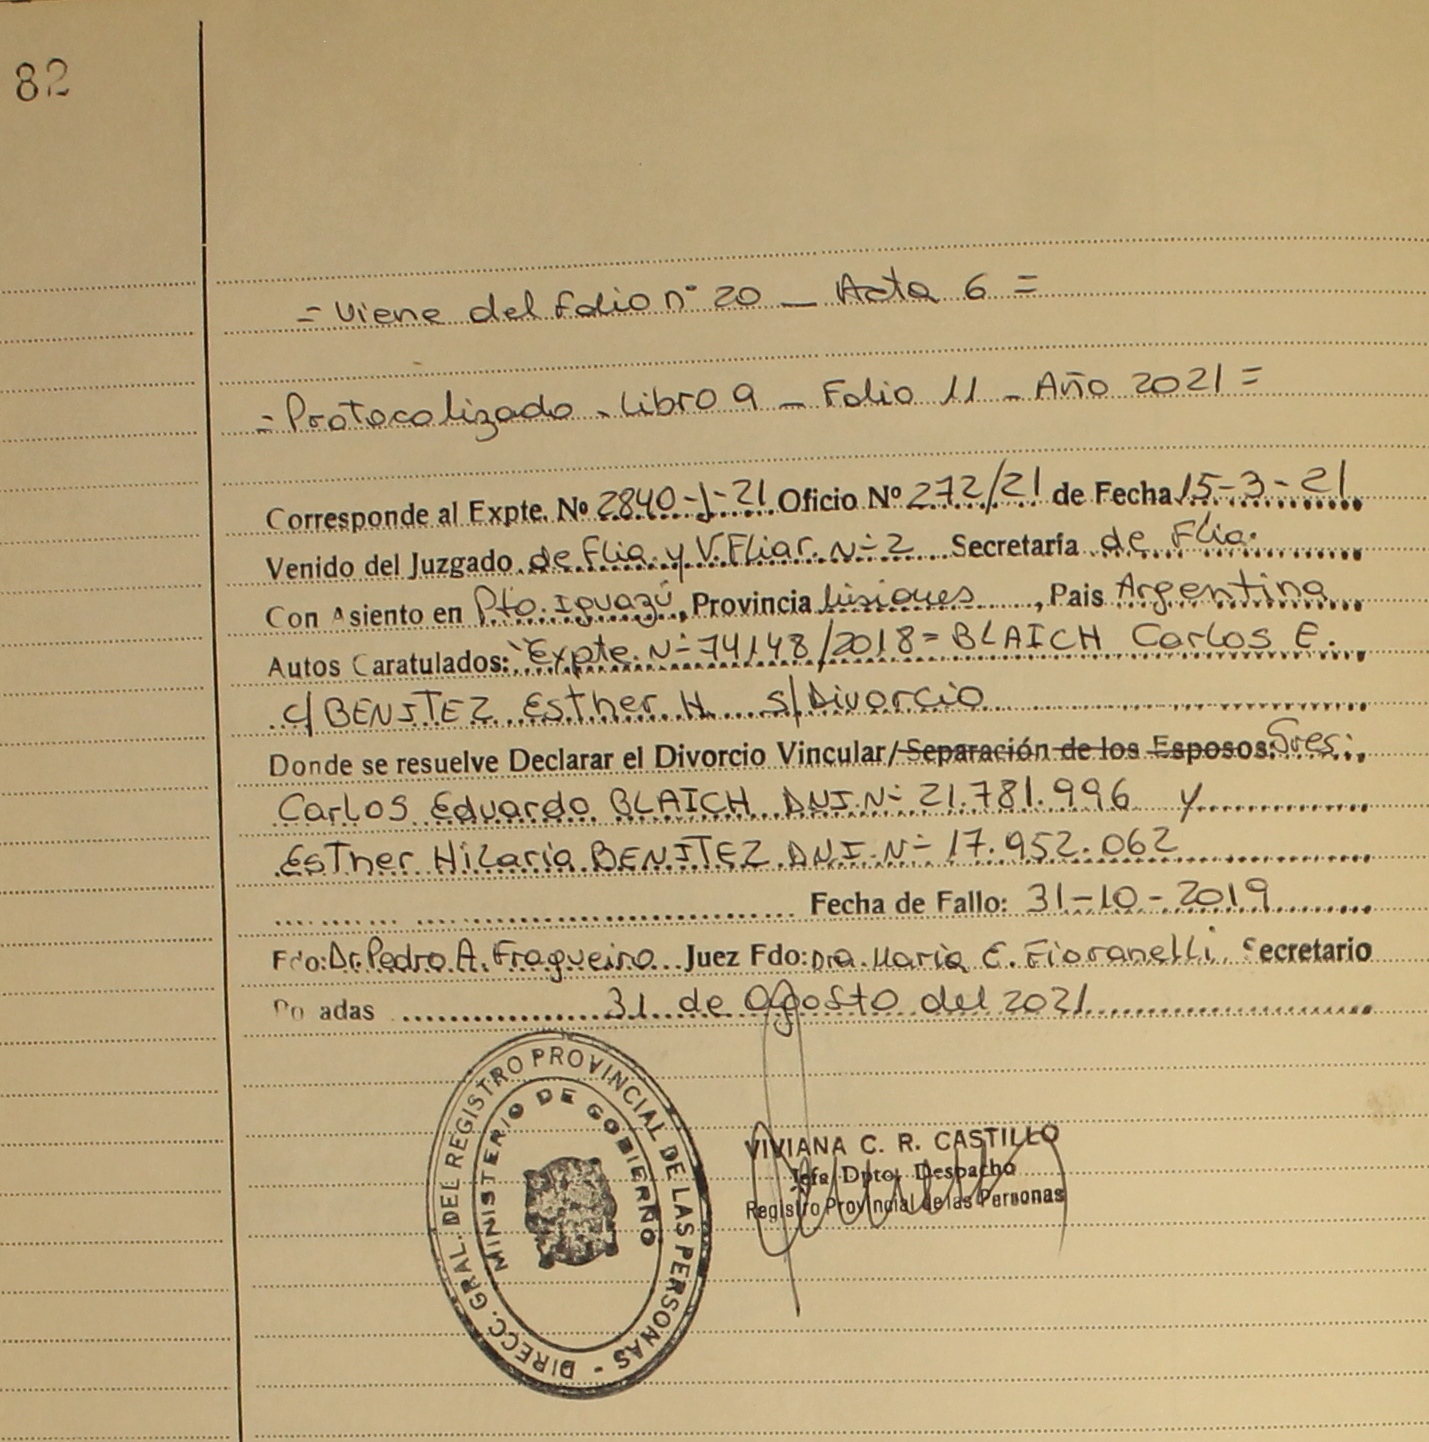 82
= Viene del folio nº 20 _ Acta 6 =
= Protocolizado - Libro 9 _ Folio 11 _ Año 2021 =
Corresponde al Expte. Nº 2840-J-21 Oficio Nº 272/21 de Fecha 15-3-21
Venido del Juzgado de Flia. y V. Fliar. Nº 2 Secretaría de Flia.
Con Asiento en Pto. Iguazú, Provincia Misiones, Pais Argentina
Autos Caratulados: "Expte. Nº 74148/2018 = BLAICH Carlos E.
c/ BENITEZ Esther H. s/Divorcio
Donde se resuelve Declarar el Divorcio Vincular/Separación de los Esposos: Sres:
Carlos Eduardo BLAICH DNI. Nº 21.781.996 y
Esther Hilaria BENITEZ DNI. Nº 17.952.062
Fecha de Fallo: 31-10-2019
Fdo: Dr. Pedro A. Fragueiro Juez Fdo: Dra. Maria C. Fioranelli Secretario
Po adas 31 de agosto del 2021
DIRECC. GRAL. DEL REGISTRO PROVINCIAL DE LAS PERSONAS -
MINISTERIO DE GOBIERNO
VIVIANA C. R. CASTILLO
Jefa Dpto. Despacho
Registro Provincial de las Personas